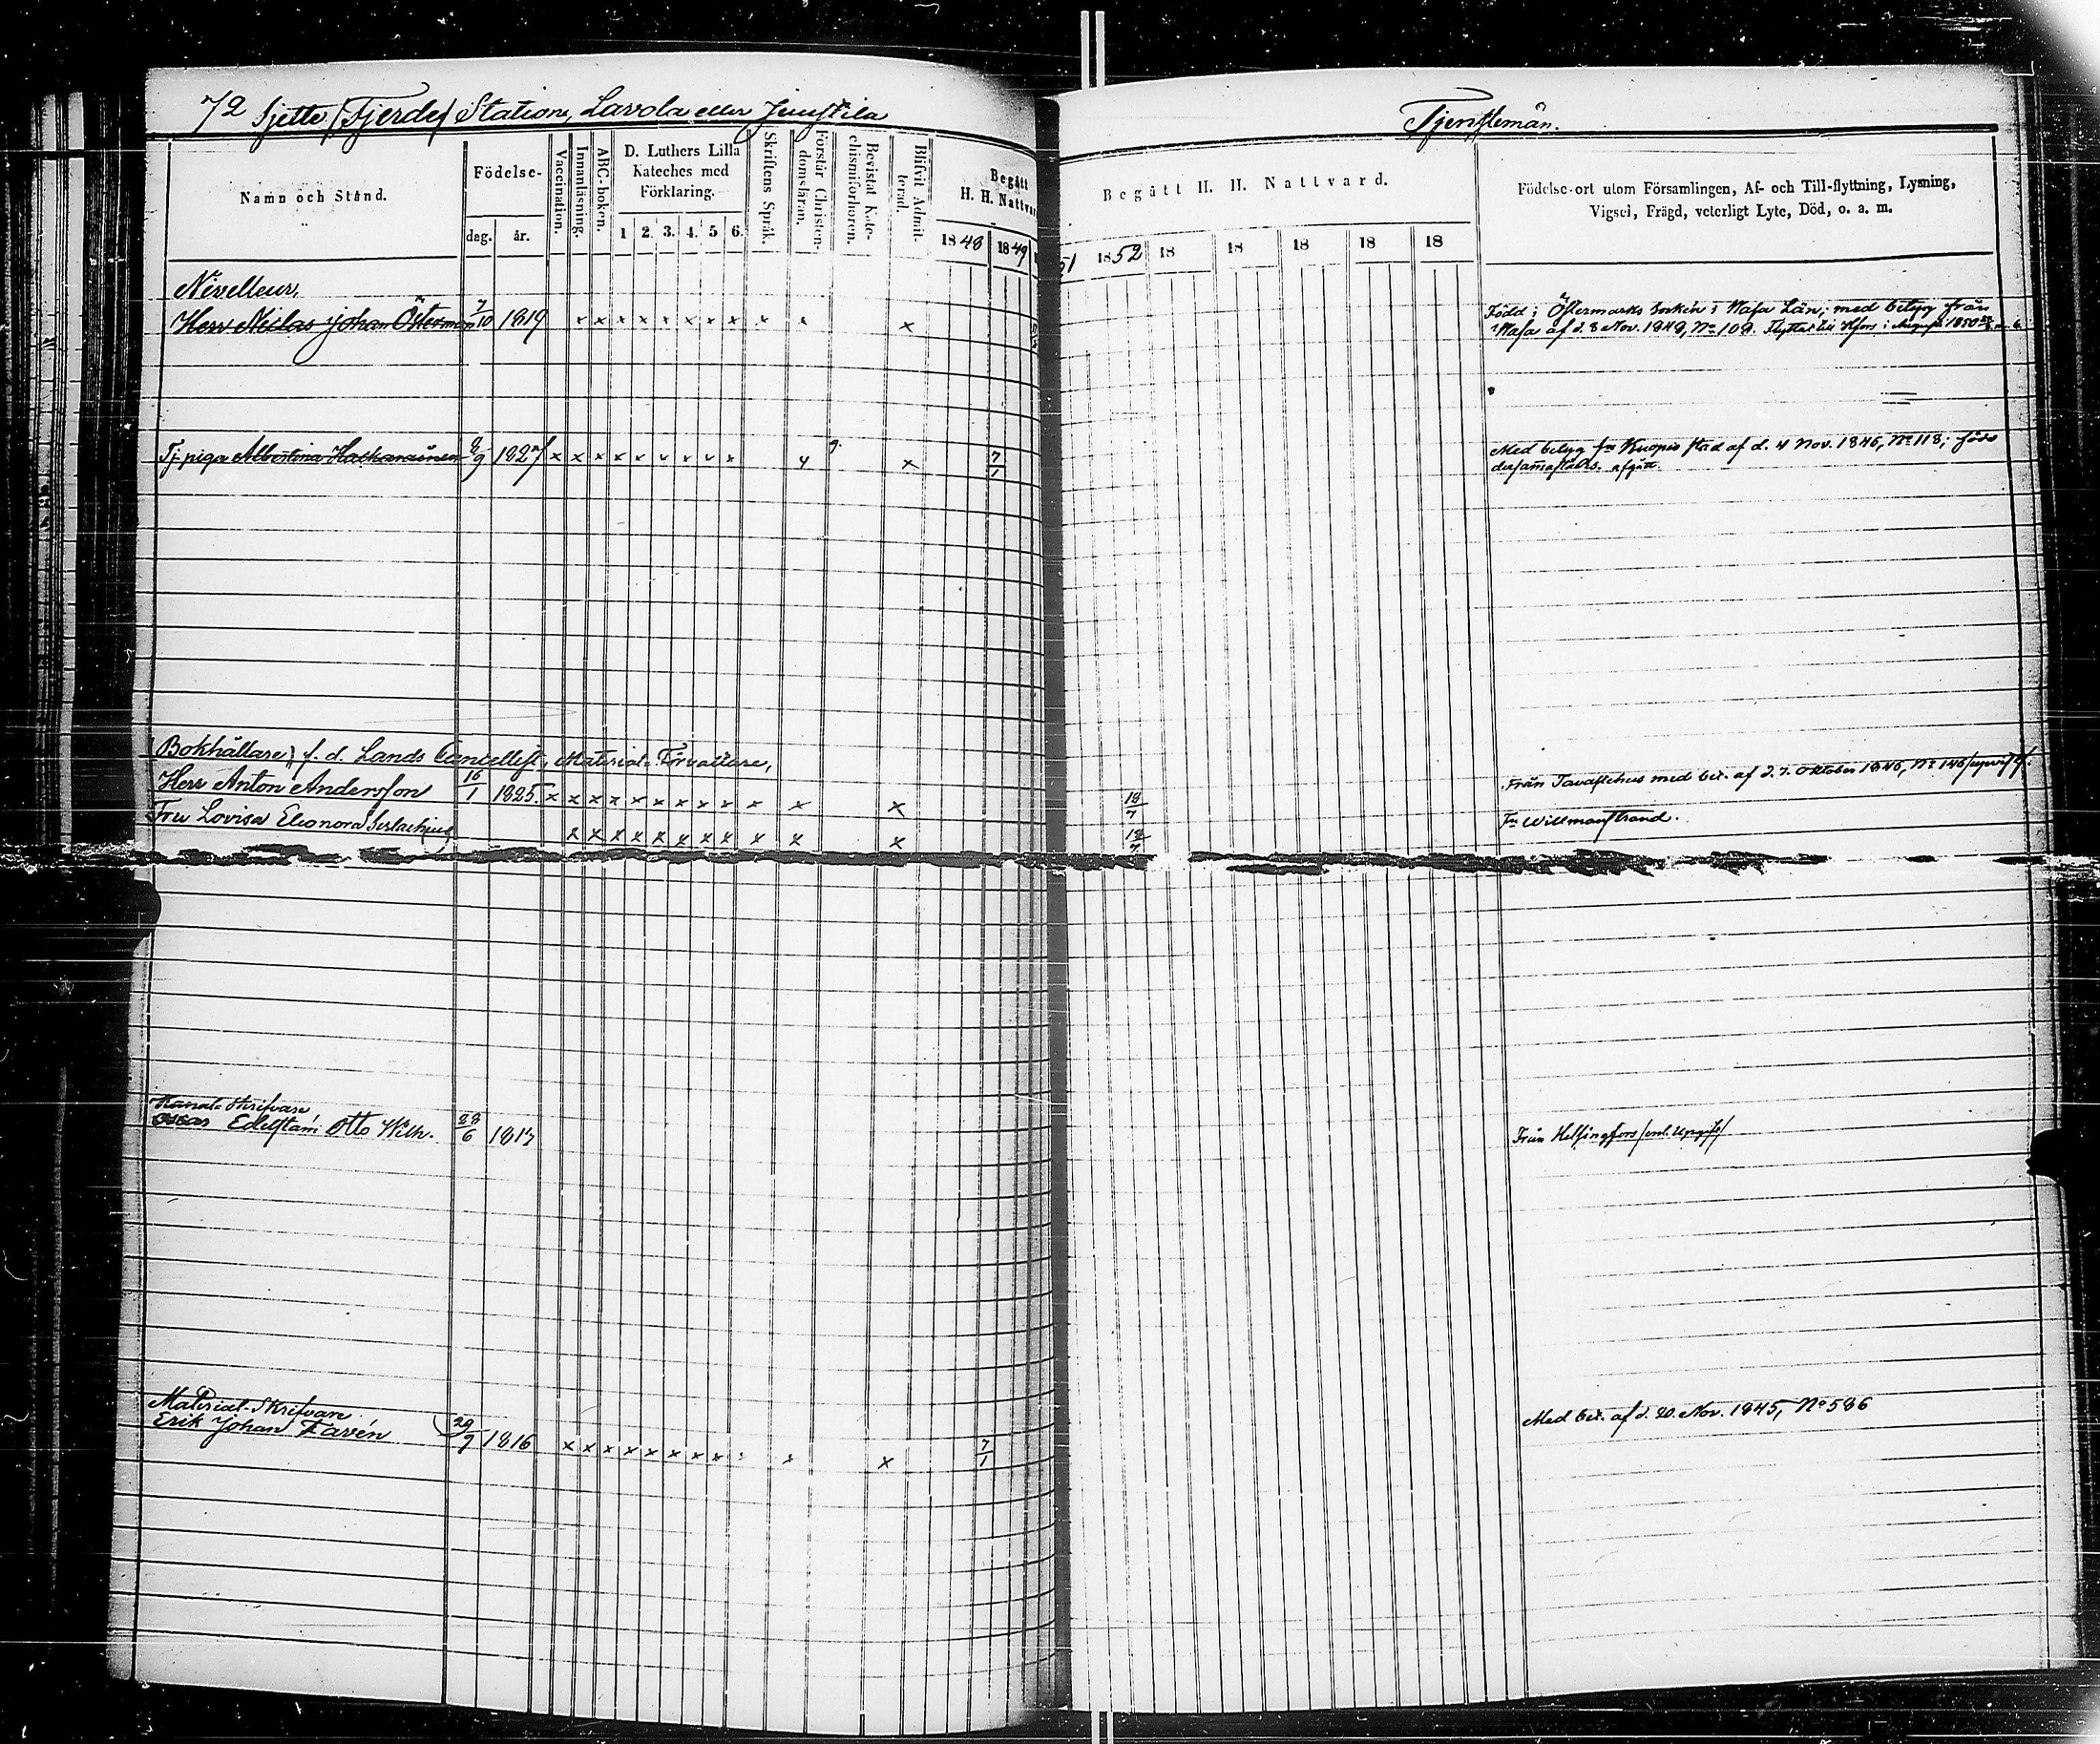 72 Sjette /Fjerde/ Station, Lavola eller Jusstila
Tjenstemän.
Namn och Stånd.
Födelse-
dag. år.
Vaccination.
Innanläsning.
ABC-boken.
D. Luthers Lilla
Kateches med
Förklaring.
1 2. 3. 4. 5 6.
Skriftens Språk.
Förstår Christen-
domsläran.
Bevistat Kate-
chismiförhoren.
Blifvit Admit-
terad.
Begått
H. H. Nattvar
1848 1849
Begått H. H. Nattvard.
51 1852 18 18 18 18 18
Födelse-ort utom Församlingen, Af- och Till-flyttning, Lysning,
Vigsel, Frägd, veterligt Lyte, Död, o. a. m.
Nivelleur,
Herr Niclas Johan Österman 7/10 1819 x x x x x x x x x x x
Född i Östermarks Socken i Wasa Län; med betyg från
Wasa af d. 8 Nov. 1848, No 108. Flyttat till Hfors i Augusti 1850
Tj. piga Albertina Hakkarainen 9/9 1827 x x x x x x x x x x x 7/1
Med betyg fr Kuopio stad af d. 4 Nov. 1846, No 118; född
dersammastädes. afgått.
(Bokhållare) f. d. Lands Cancellist, Material-Förvaltare,
Herr Anton Andersson 16/1 1825. x x x x x x x x x x x x 18/7
Från Tavastehus med bet. af d. 7. Oktober 1846, No 146
Fru Lovisa Eleonora Serlachius x x x x x x x x x x x 18/7
Fr Willmanstrand.
Kanal-Skrifvare
Oskar Edelstam Otto Wilh. 28/6 1817
Från Helsingfors /enl. Upgift/
Material-Skrifvare
Erik Johan Favén 29/9 1816 x x x x x x x x x x x 7/1
Med bet. af d. 20 Nov. 1845, No 586